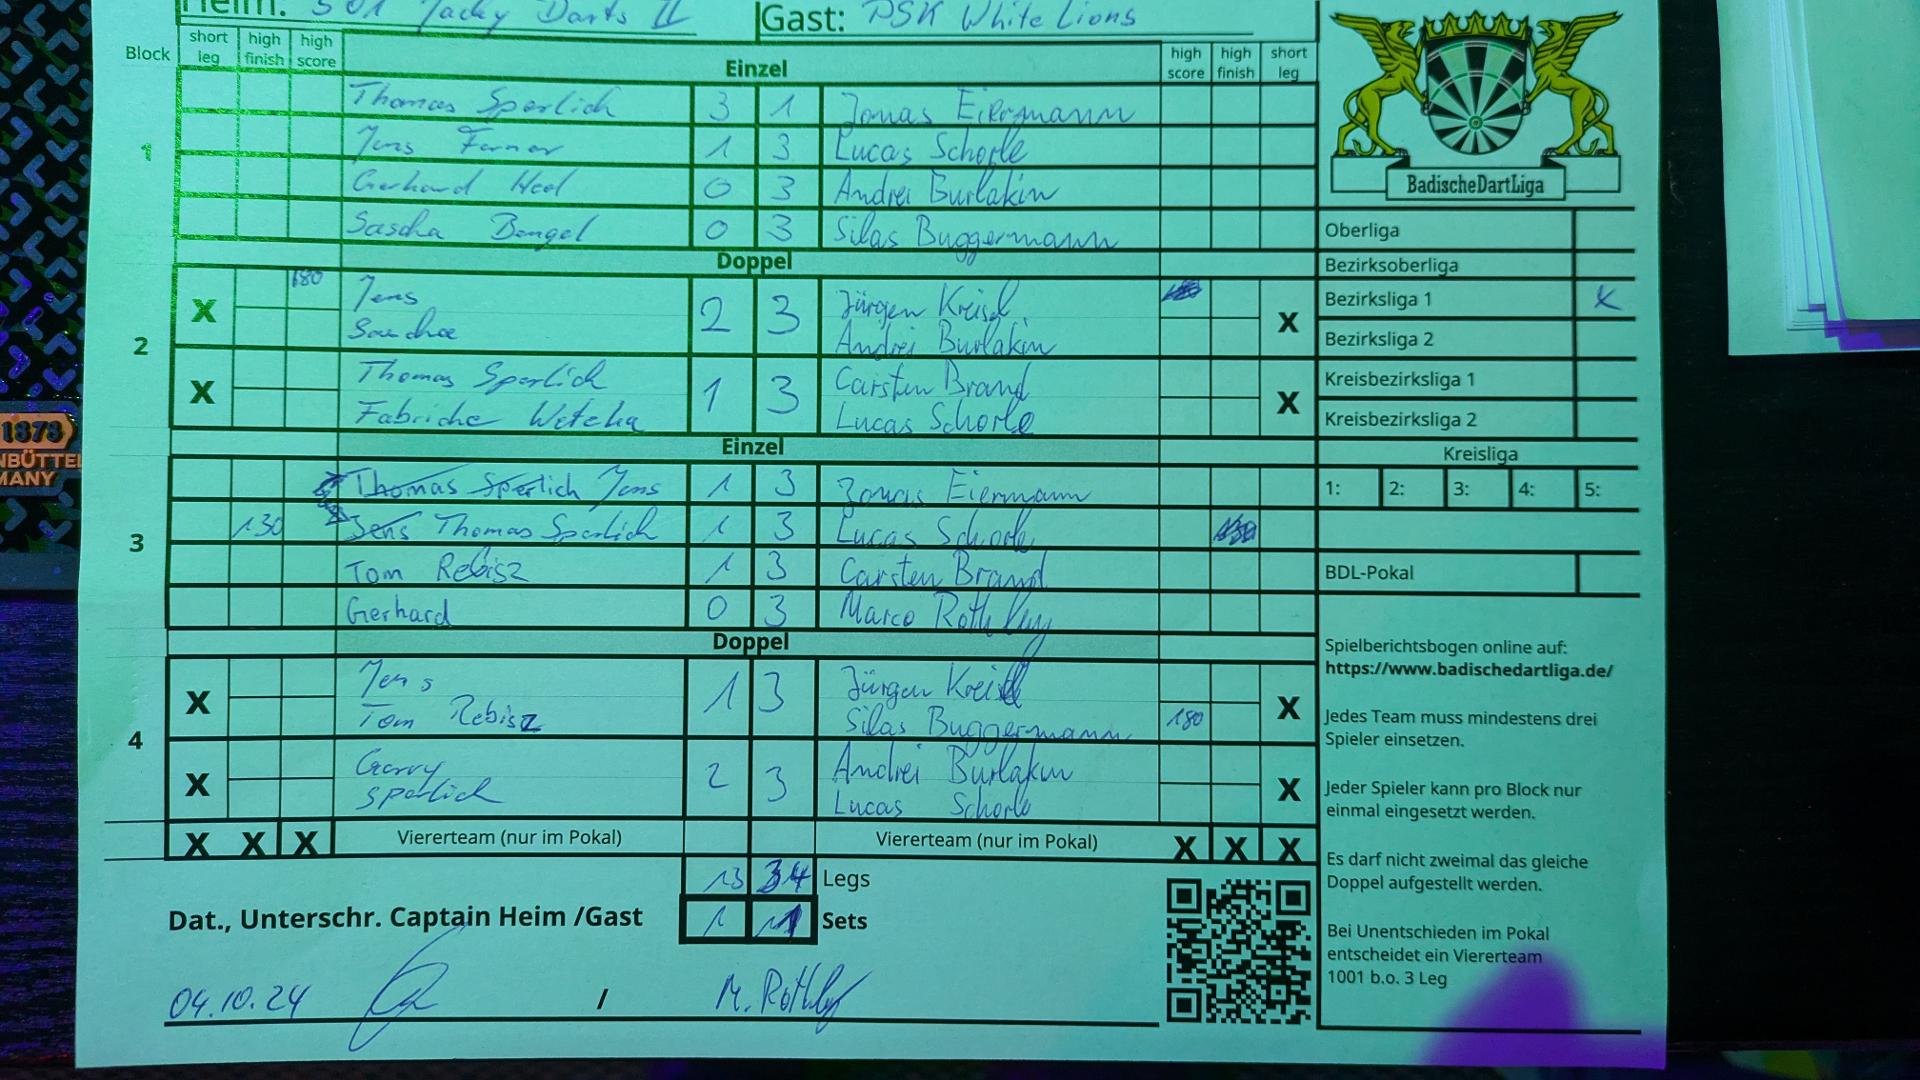 Heim: 501 Jacky Darts II Gast: PSK White Lions
Block short leg high finish high score Einzel high score high finish short leg
Thomas Sperlich 3 1 Jonas Eiermann
1 Jens 1 3 Lucas Schorle
Gerhard 0 3 Andrei Burlakin
Sascha Bengel 0 3 Silas Buggermann
Doppel
2
X 180 Jens 2 3 Jürgen Kreisl X
Sascha Andrei Burlakin
X Thomas Sperlich 1 3 Carsten Brand X
Lucas Schorle
Einzel
3
Thomas Sperlich Jens 1 3 Jonas Eiermann
130 Jens Thomas Sperlich 1 3 Lucas Schorle
Tom Rebisz 1 3 Carsten Brand
Gerhard 0 3 Marco
Doppel
4
X Jens 1 3 Jürgen Kreisl X
Tom Rebisz Silas Buggermann 180
X Gerry 2 3 Andrei Burlakin X
Sperlich Lucas Schorle
X X X Viererteam (nur im Pokal) Viererteam (nur im Pokal) X X X
13 34 Legs
Dat., Unterschr. Captain Heim /Gast 1 11 Sets
04.10.24 / M.
BadischeDartLiga
Oberliga
Bezirksoberliga
Bezirksliga 1 x
Bezirksliga 2
Kreisbezirksliga 1
Kreisbezirksliga 2
Kreisliga
1: 2: 3: 4: 5:
BDL-Pokal
Spielberichtsbogen online auf:
https://www.badischedartliga.de/
Jedes Team muss mindestens drei
Spieler einsetzen.
Jeder Spieler kann pro Block nur
einmal eingesetzt werden.
Es darf nicht zweimal das gleiche
Doppel aufgestellt werden.
Bei Unentschieden im Pokal
entscheidet ein Viererteam
1001 b.o. 3 Leg
1878
NBÜTTEL
MANY